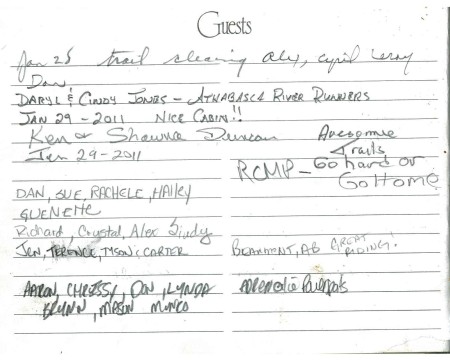 Guests
Jan 25 trail clearing Alex, Cyril Leroy
Dan
DARYL & CINDY JONES - ATHABASCA RIVER RUNNERS
JAN 29-2011 NICE CABIN!!
Ken & Shawna Duncan Awesome
Jan 29-2011 Trails
RCMP - Go hard or
Go Home
DAN, SUE, RACHELE, HAILEY
GUENETTE
Richard, Crystal, Alex
JEN, TERENCE, TYSON & CARTER BEAUMONT, AB GREAT
RIDING!
AARON, CHRISSY, DON, LYNDA
BRYNN, MASON MUNRO